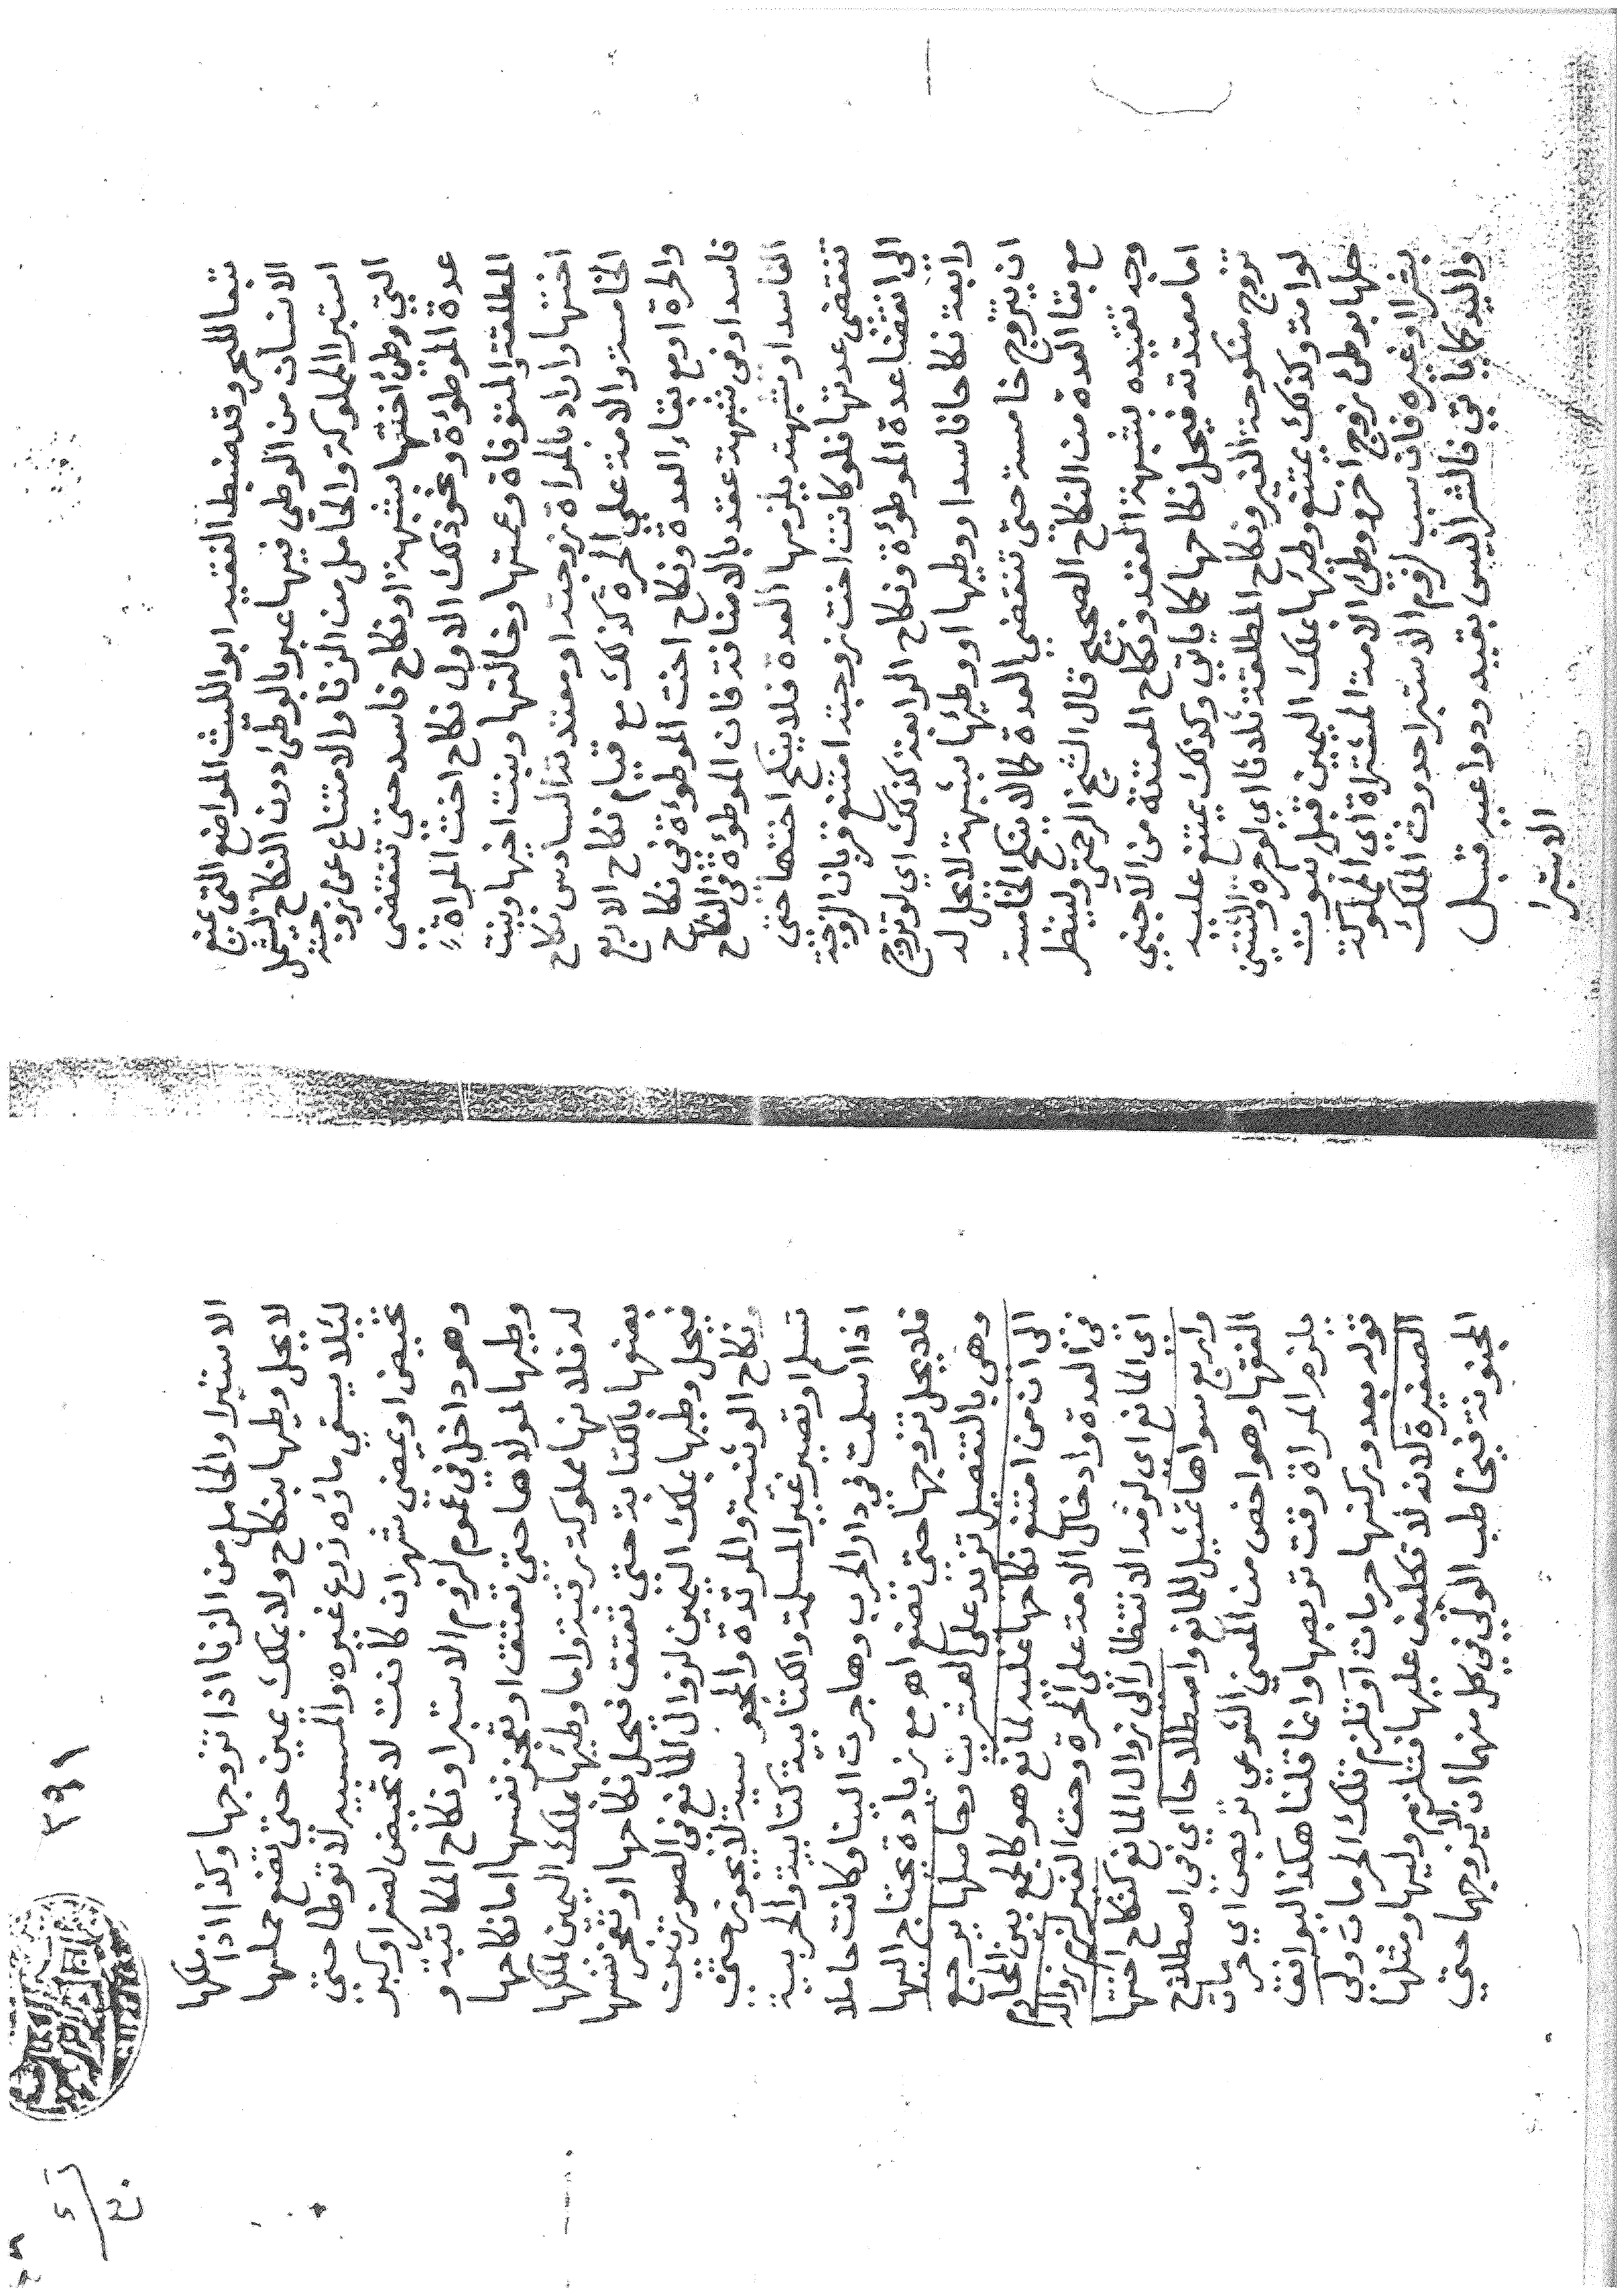 تبعا للبحر وقد ضبط الفقيه ابو الليث المواضع التي يمتنع
الانسان من الوطي فيها عبر بالوطئ دون النكاح ليشمل
استبرا المملوكة والحامل من الزنا والامتناع عن زوجته
التي وطئ اختها بشبهة او نكاح فاسد حتى تنقضى
عدة الموطؤة ونحو ذلك الاول نكاح اخت المراة
المطلقة والمتوفاة وعمتها وخالتها وبنت اخيها وبنت
اختها واراد بالمراة زوجته او معتدته السادس نكاح
الخامسة والامة على الحرة كذلك مع قيام نكاح الاربع
والحرة او مع بقاء العدة ونكاح اخت الموطؤة في نكاح
فاسد او في شبهة عقد بالامنافة فان الموطؤة في النكاح
الفاسد او شبهته يلزمها العدة فلا ينكح اختها حتى
تنقضى عدتها فلو كانت اخت زوجته امتنع قربان الزوجة
الى انقضا عدة الموطؤة ونكاح الرابعة كذلك اي لو تزوج
رابعة نكاحا فاسدا ووطيها او وطئها بشبهة لا يحل له
ان يتزوج خامسة حتى تنقضي العدة كما لا ينكح الخامسة
مع بقا العدة من النكاح الصحيح قال الشيخ الرحمتي ولينظر
وجه تقييده بشبهة العقد ونكاح المعتدة من الاجنبي
اما معتدته فيحل نكاحها كما ياتي وكذلك يمتنع عليه
تزوج منكوحة الغير ونكاح المطلقة ثلاثا اي لو حرة وثنتين
لو امة وكذلك يمتنع وطئها بملك اليمين قبل ثبوت
حلها بوطئ زوج اخر ووطئ الامة المشتراة اي المملوكة
بشرا او غيره فان سبب لزوم الاستبرا حدوث الملك
واليد كما ياتي فالشرا ليس بقيد ودواعيه قبل
الاستبرا
٣٩١
الاستبرا والحامل من الزنا اذا تزوجها وكذا اذا ملكها
لا يحل وطيها بنكاح ولا بملك يمين حتى تضع حملها
ليئلا يسقي ماؤه زرع غيره والمسبية لا توطا حتى
تحيض او يمضي شهر ان كانت لا تحيض لصغر او كبر
وهو داخل في عموم لزوم الاستبرا ونكاح المكاتبة و
وطيها لمولاها حتى تعتق او تعجز نفسها اما نكاحها
له فلانها مملوكة رقبة واما وطئها بملك اليمين لملكها
بعضها بالكتابة حتى تعتق فيحل نكاحها او تعجز نفسها
فيحل وطيها بملك اليمين لزوال المانع في الصورتين
ونكاح الوثنية والمرتدة والمجوسية لا يجوز حتى
تسلم او تصير غير المسلمة والكتابية كتابية والحربية
اذا اسلمت في دار الحرب وهاجرت الينا وكانت حاملا
فلا يحل تزوجها حتى تضع اه مع زيادة يحتاج اليها
وهي بالتفصيل تزيد على العشرين وحاصلها يرجع
الى ان من امتنع نكاحها عليه لمانع هو كالجمع بين المحارم
في العدة وادخال الامة على الحرة وحق الغير لزم زواله
اي المانع اي لزمه الانتظار الى زوال المانع كنكاح اختها
واربع سواها تمثيل للمانع واصطلاحا اي في اصطلاح
الفقها وهو اخص من المعني الشرعي تربص اي جريان
يلزم المراة وقت تربصها وانما قلنا هكذا ليوافق
قوله بعد وركنها حرمات او تلزم تلك الحرمات ولي
الصغيرة لانه لا تكليف عليها فتلزم وليها ومثلها
المجنونة فيخاطب الولي في كل منهما ان لا يزوجها حتى